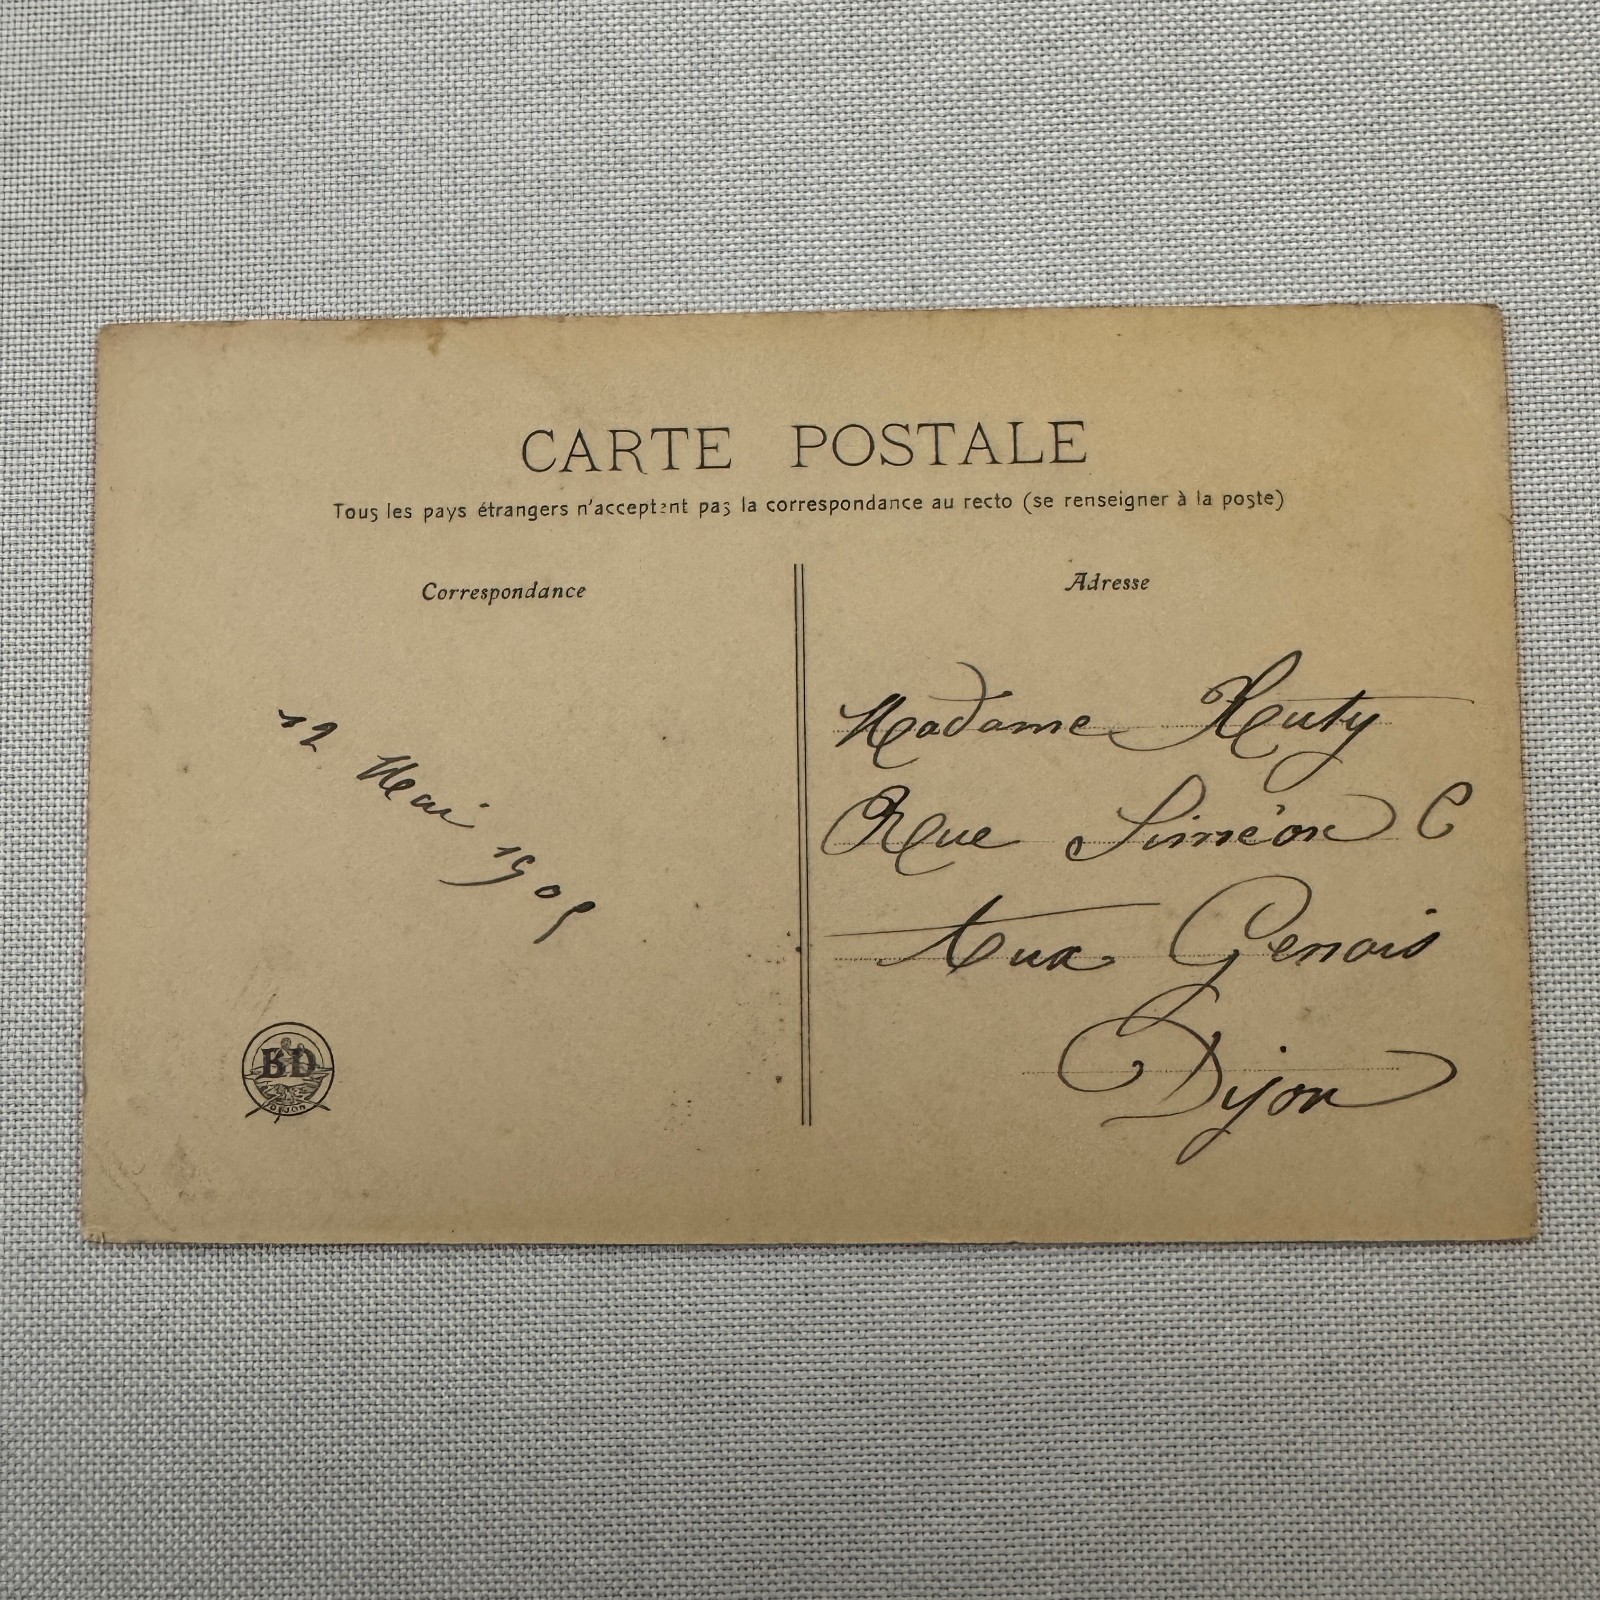 CARTE POSTALE
Tous les pays étrangers n'acceptent pas la correspondance au recto (se renseigner à la poste)
Correspondance
Adresse
12 Mai 1905
Madame
Rue Siméon C
Aux Genois
Dijon
BD
DIJON